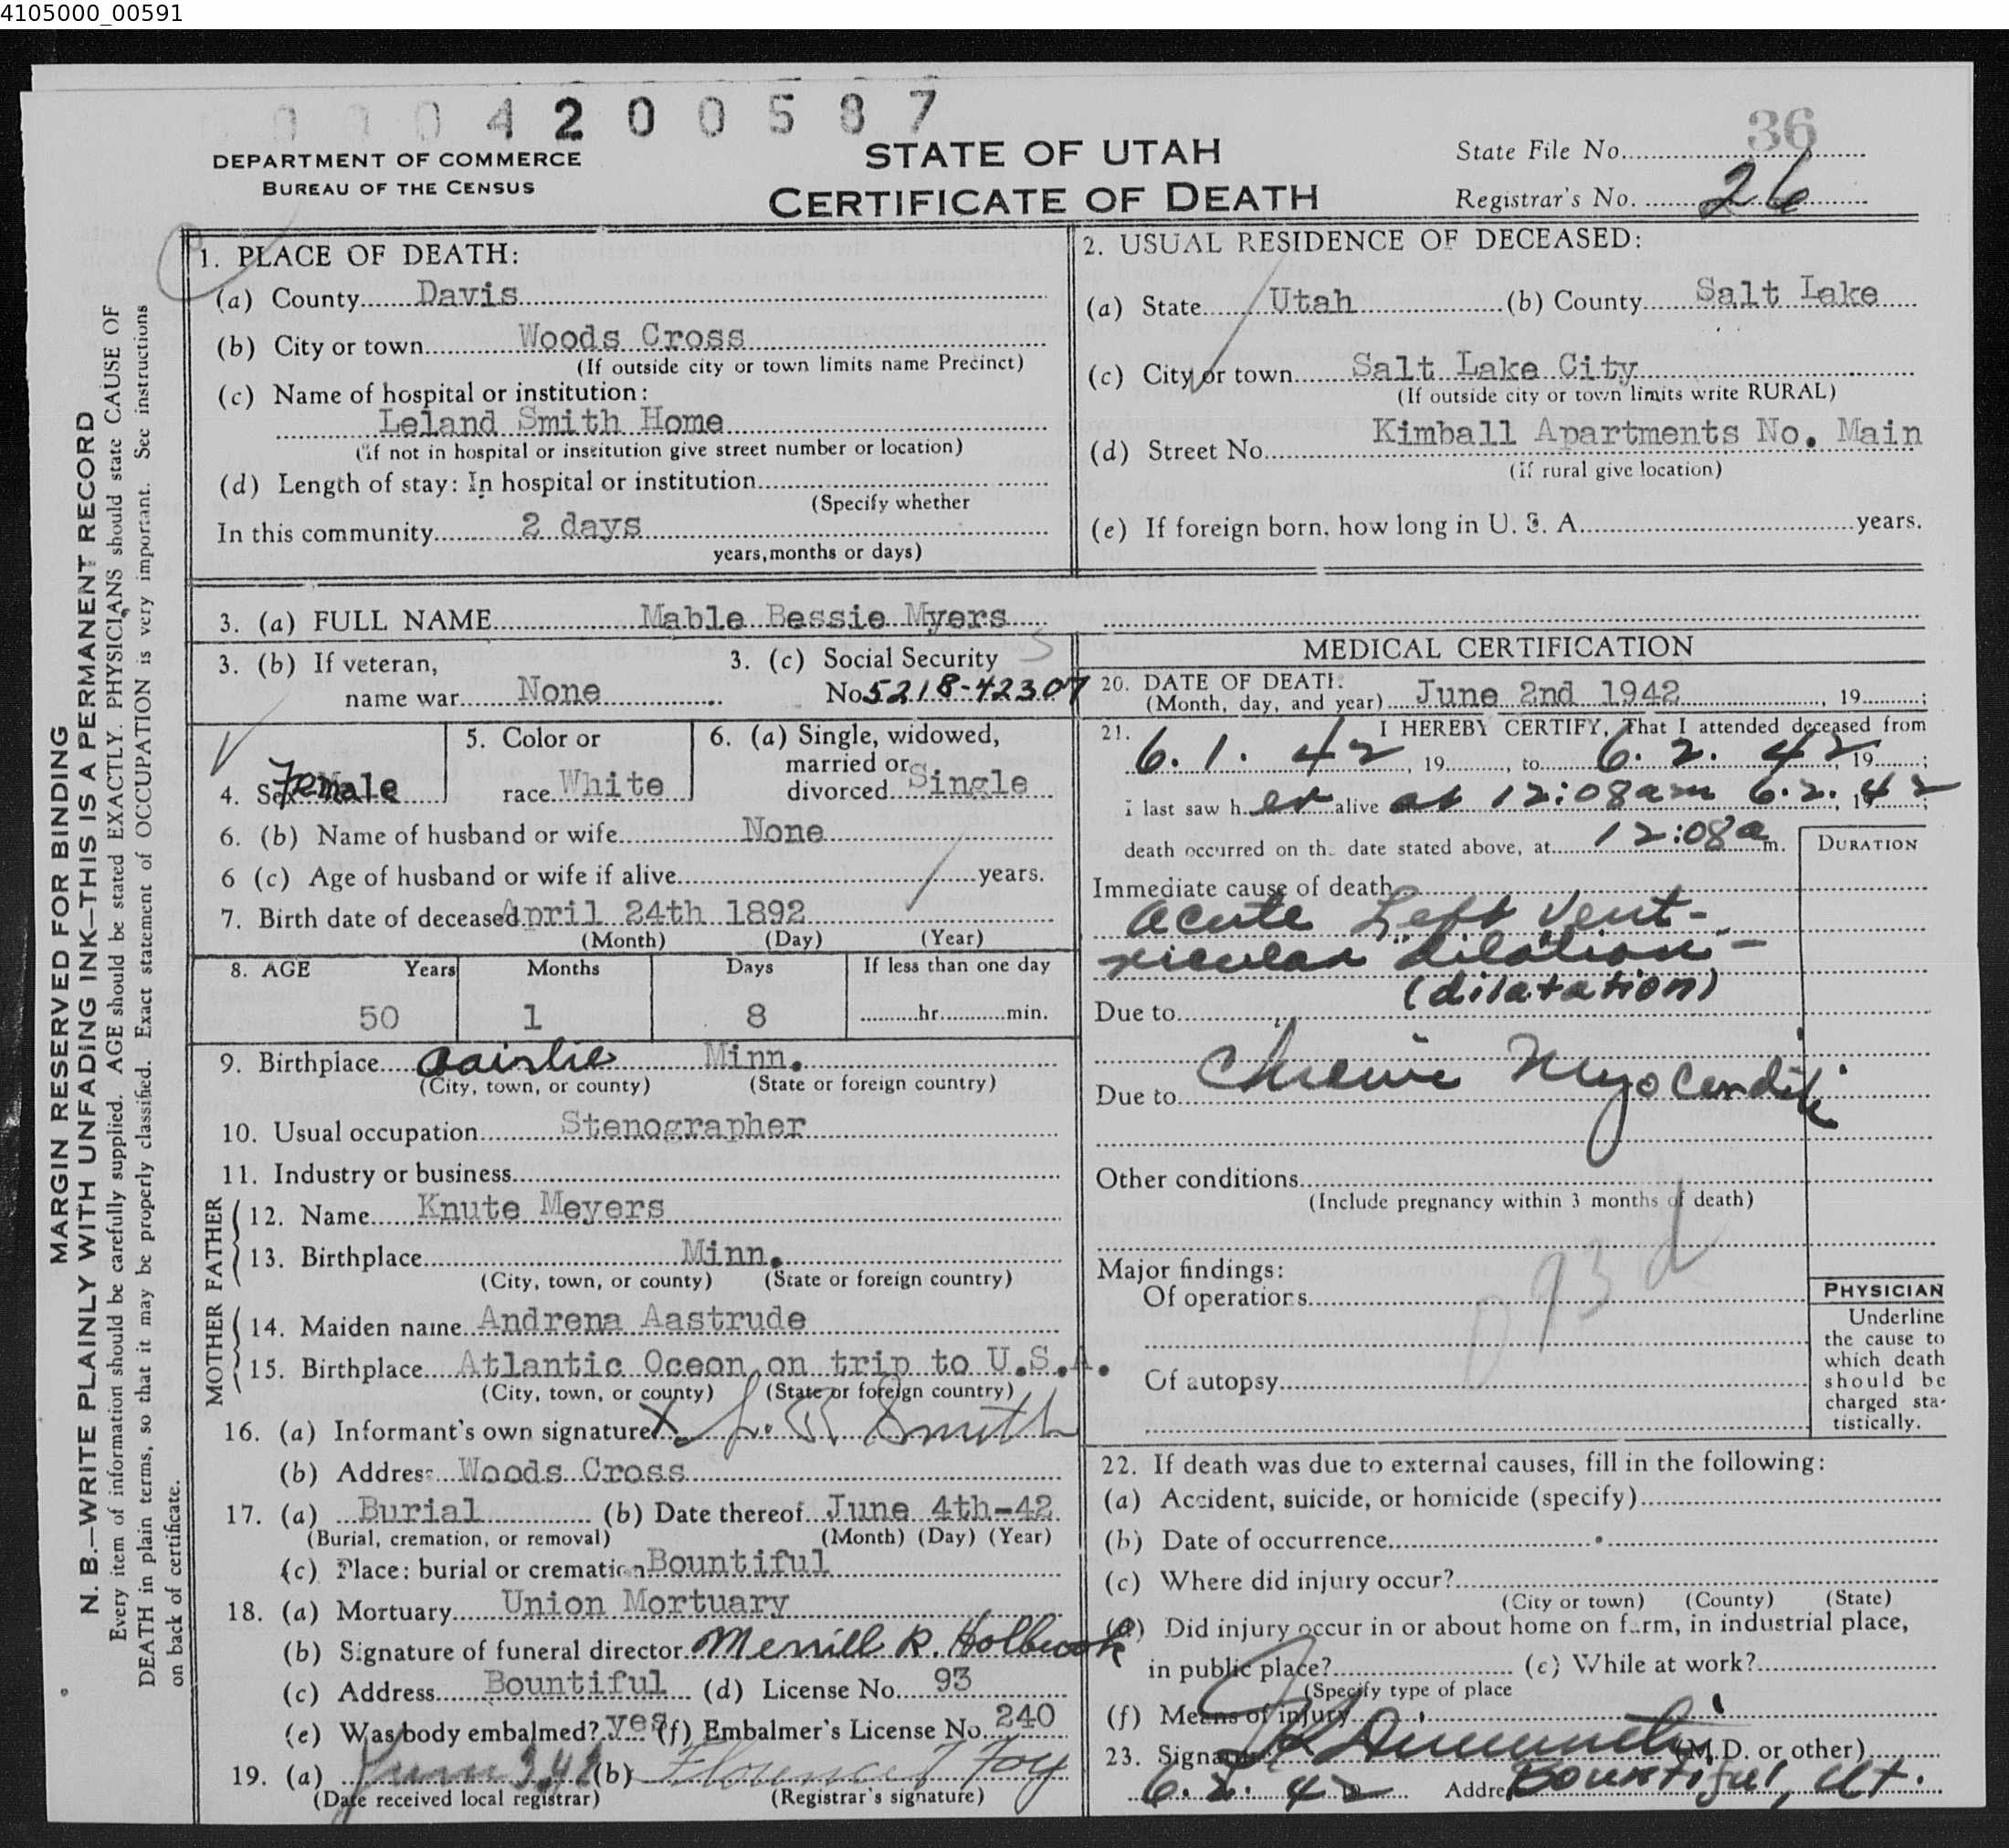 4105000_00591
0004200587
DEPARTMENT OF COMMERCE
BUREAU OF THE CENSUS
STATE OF UTAH
CERTIFICATE OF DEATH
State File No. 36
Registrar's No. 26
MARGIN RESERVED FOR BINDING
N. B.—WRITE PLAINLY WITH UNFADING INK—THIS IS A PERMANENT RECORD
Every item of information should be carefully supplied. AGE should be stated EXACTLY. PHYSICIANS should state CAUSE OF
DEATH in plain terms, so that it may be properly classified. Exact statement of OCCUPATION is very important. See instructions
on back of certificate.
1. PLACE OF DEATH:
(a) County Davis
(b) City or town Woods Cross
(If outside city or town limits name Precinct)
(c) Name of hospital or institution:
Leland Smith Home
(If not in hospital or institution give street number or location)
(d) Length of stay: In hospital or institution
(Specify whether
In this community 2 days
years, months or days)
2. USUAL RESIDENCE OF DECEASED:
(a) State Utah (b) County Salt Lake
(c) City or town Salt Lake City
(If outside city or town limits write RURAL)
(d) Street No. Kimball Apartments No. Main
(if rural give location)
(e) If foreign born, how long in U. S. A. years.
3. (a) FULL NAME Mable Bessie Myers
3. (b) If veteran,
name war None
3. (c) Social Security
No 5218-42307
4. Sex Female
5. Color or
race White
6. (a) Single, widowed,
married or
divorced Single
6. (b) Name of husband or wife None
6 (c) Age of husband or wife if alive years.
7. Birth date of deceased April 24th 1892
(Month) (Day) (Year)
8. AGE Years Months Days If less than one day
50 1 8 hr. min.
9. Birthplace Minn.
(City, town, or county) (State or foreign country)
10. Usual occupation Stenographer
11. Industry or business
FATHER
12. Name Knute Meyers
13. Birthplace Minn.
(City, town, or county) (State or foreign country)
MOTHER
14. Maiden name Andrena Aastrude
15. Birthplace Atlantic Oceon on trip to U.S.A.
(City, town, or county) (State or foreign country)
16. (a) Informant's own signature X Smith
(b) Address Woods Cross
17. (a) Burial (b) Date thereof June 4th-42
(Burial, cremation, or removal) (Month) (Day) (Year)
(c) Place: burial or cremation Bountiful
18. (a) Mortuary Union Mortuary
(b) Signature of funeral director Merrill R. Holbrook
(c) Address Bountiful (d) License No. 93
(e) Was body embalmed? yes (f) Embalmer's License No. 240
19. (a) June 3, 42 (b) Florence Foy
(Date received local registrar) (Registrar's signature)
MEDICAL CERTIFICATION
20. DATE OF DEATH:
(Month, day, and year) June 2nd 1942, 19 ;
21. I HEREBY CERTIFY, That I attended deceased from
6. 1. 42, 19 , to 6. 2. 42, 19 ;
I last saw h er alive at 12:08am 6.2., 1942
death occurred on the date stated above, at 12:08a m.
DURATION
Immediate cause of death
Acute Left Vent-
ricular "dilation" -
(dilatation)
Due to
Due to Chronic Myocarditis
Other conditions
(Include pregnancy within 3 months of death)
093d
Major findings:
Of operations
Of autopsy
PHYSICIAN
Underline
the cause to
which death
should be
charged sta-
tistically.
22. If death was due to external causes, fill in the following:
(a) Accident, suicide, or homicide (specify)
(b) Date of occurrence
(c) Where did injury occur?
(City or town) (County) (State)
(d) Did injury occur in or about home on farm, in industrial place,
in public place? (e) While at work?
(Specify type of place
(f) Means of injury
23. Signature (M.D. or other)
6. 2. 42 Address Bountiful, Ut.